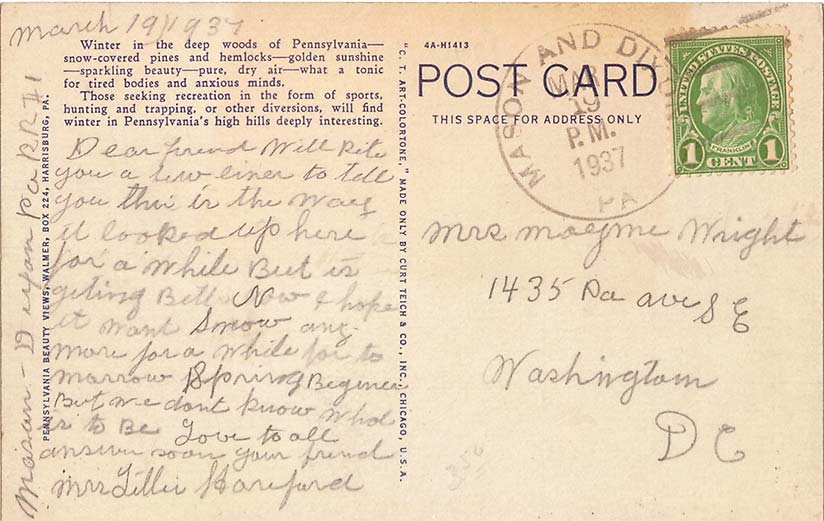 March 19, 1937
Winter in the deep woods of Pennsylvania—
snow-covered pines and hemlocks—golden sunshine
—sparkling beauty—pure, dry air—what a tonic
for tired bodies and anxious minds.
Those seeking recreation in the form of sports,
hunting and trapping, or other diversions, will find
winter in Pennsylvania's high hills deeply interesting.
Dear frend Will Rite
you a few liner to tell
you this is the Way
it looked up here
for a while But is
geting Bett Now I hope
it want Snow any
more for a while for to
marrow Spring Beginer
But we dont know whot
is to Be Love to all
answer soon your frend
Mrs Lillie Hareford
Mason - D ixon Pa RR #1
PENNSYLVANIA BEAUTY VIEWS, WALMER, BOX 224, HARRISBURG, PA.
"C. T. ART-COLORTONE," MADE ONLY BY CURT TEICH & CO., INC., CHICAGO, U.S.A.
4A-H1413
POST CARD
THIS SPACE FOR ADDRESS ONLY
MASON AND DIXON
MAR
19
P.M.
1937
PA
UNITED STATES POSTAGE
FRANKLIN
1 CENT 1
Mrs Mayme Wright
1435 Pa ave S E
Washington
D C
350